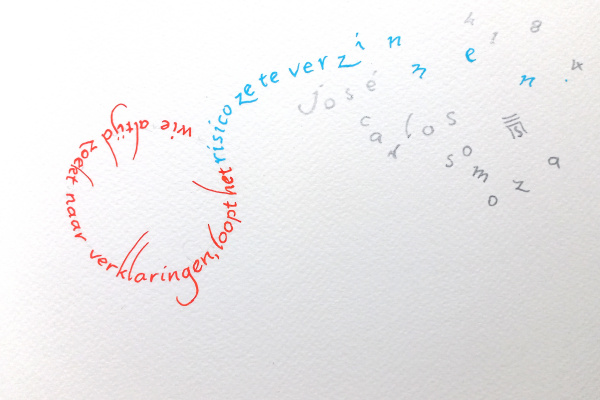 wie altijd zoekt naar verklaringen, loopt het
risico ze te verzinnen.
José
carlos
somoza